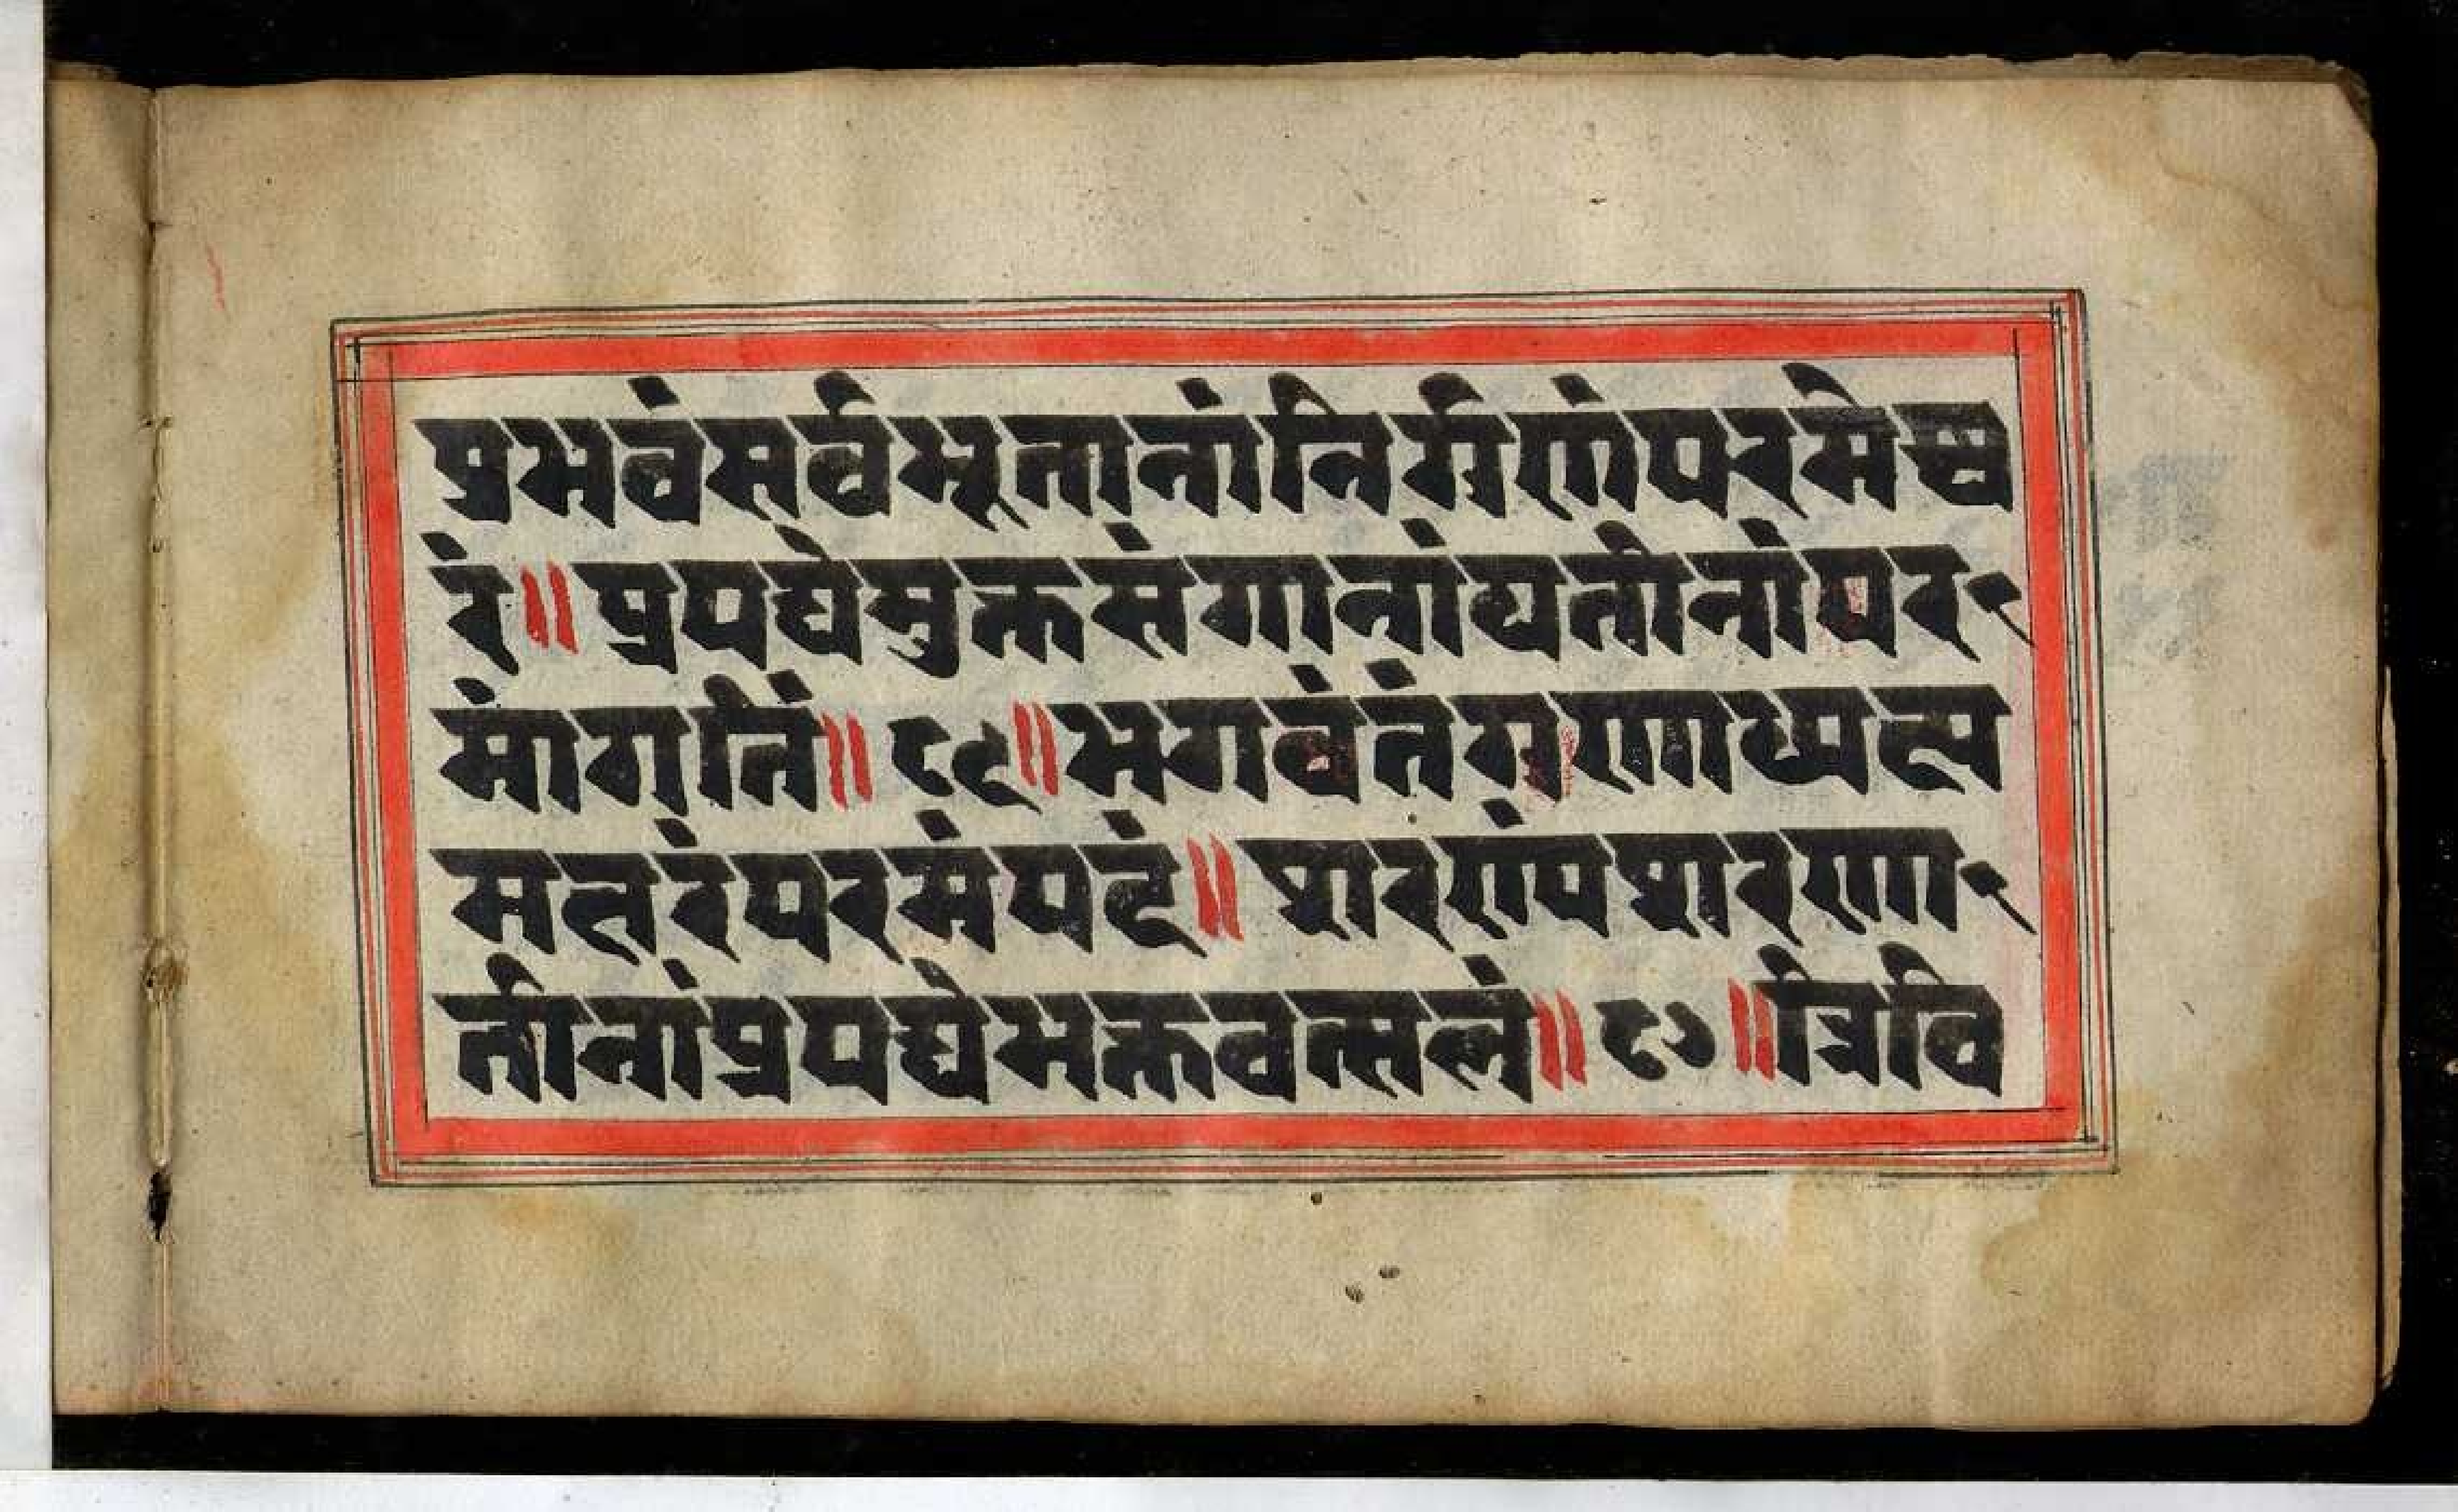 प्रभवंसर्वभूतानांनिर्गुणंपरमेश्व
रं॥प्रपद्येमुक्तसंगानांयतीनांपर-
मांगतिं॥१९॥भगवंतंगुणाध्यक्ष
मक्षरंपरमंपदं॥शरण्यंशरणा-
तीनांप्रपद्येभक्तवत्सलं॥२०॥त्रिवि